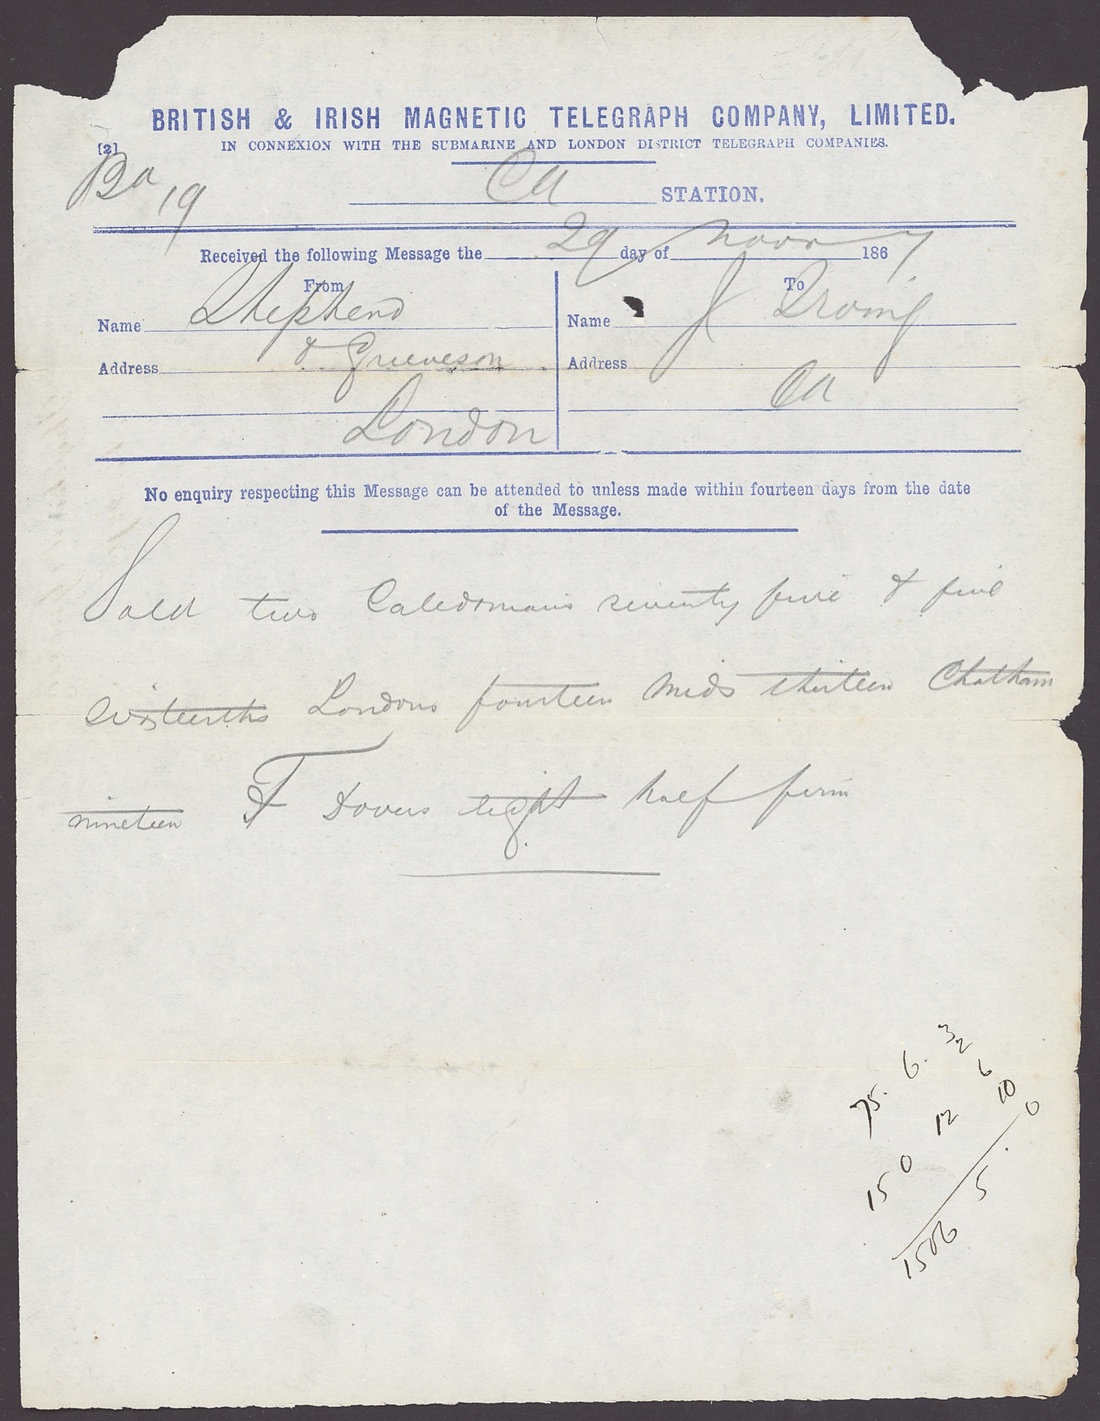 BRITISH & IRISH MAGNETIC TELEGRAPH COMPANY, LIMITED.
[2] IN CONNEXION WITH THE SUBMARINE AND LONDON DISTRICT TELEGRAPH COMPANIES.
19 Ca STATION.
Received the following Message the 29 day of Novr 1867
From To
Name Shepherd Name J Irving
Address & Grieveson Address
Ca
London
No enquiry respecting this Message can be attended to unless made within fourteen days from the date
of the Message.
Sold two Caledonians seventy five & five
sixteenths Londons fourteen Mids thirteen Chatham
nineteen & Dovers eight half firm
75. 6. 3
2
150 12 6
10 0
1506 5.